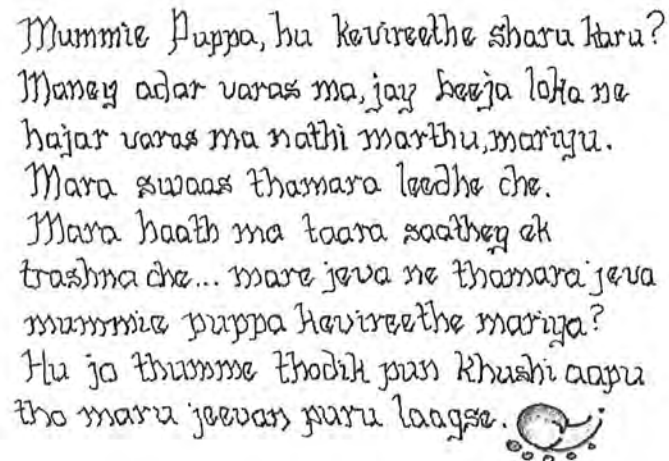 Mummie Puppa, hu kevireethe sharu karu?
Maney adar varas ma, jay beeja loka ne
hajar varas ma nathi marthu, mariyu.
Mara swaas thamara leedhe che.
Mara haath ma taara saathey ek
trashna che... mare jeva ne thamara jeva
mummie puppa kevireethe mariya?
Hu jo thumme thodik pun khushi aapu
tho maru jeevan puru laagse.